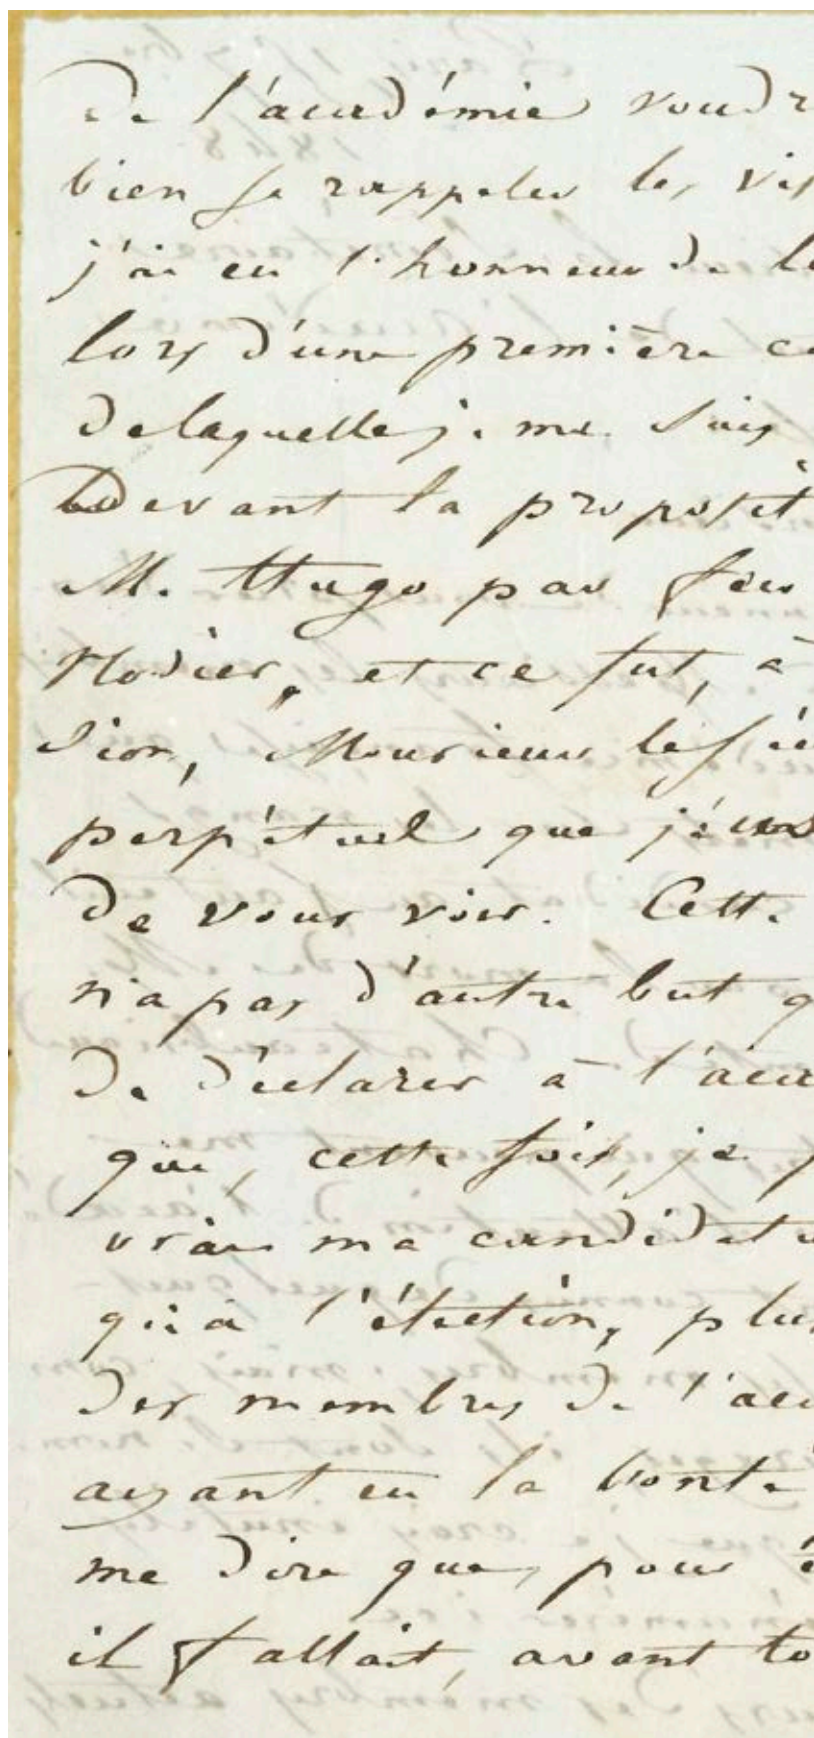 de l'académie voudr
bien se rappeler les vis
j'ai eu l'honneur de l
lors d'une première ca
de laquelle je me suis
devant la proposit
M. Hugo par feu
Nodier, et ce fut, à
sion, Monsieur le sé
perpétuel que j'eus
de vous voir. Cette
n'a pas d'autre but q
de déclarer à l'aca
que, cette fois, je
vrai ma candidatu
qu'à l'élection, plu
des membres de l'aca
ayant eu la bonté
me dire que, pour é
il fallait, avant to